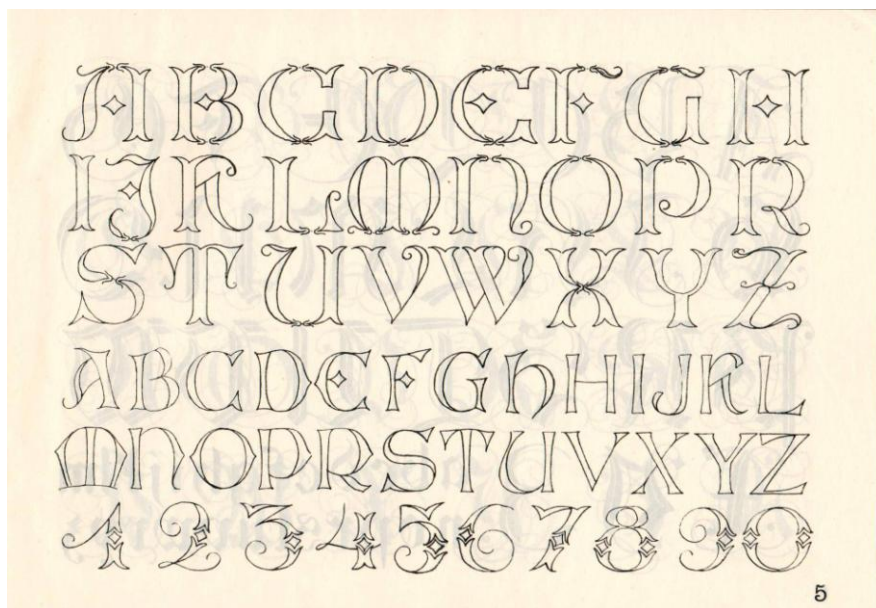 ABCDEFGH
IJKLMNOPR
STUVWXYZ
ABCDEFGhHIJKL
MNOPRSTUVXYZ
1234567890
5